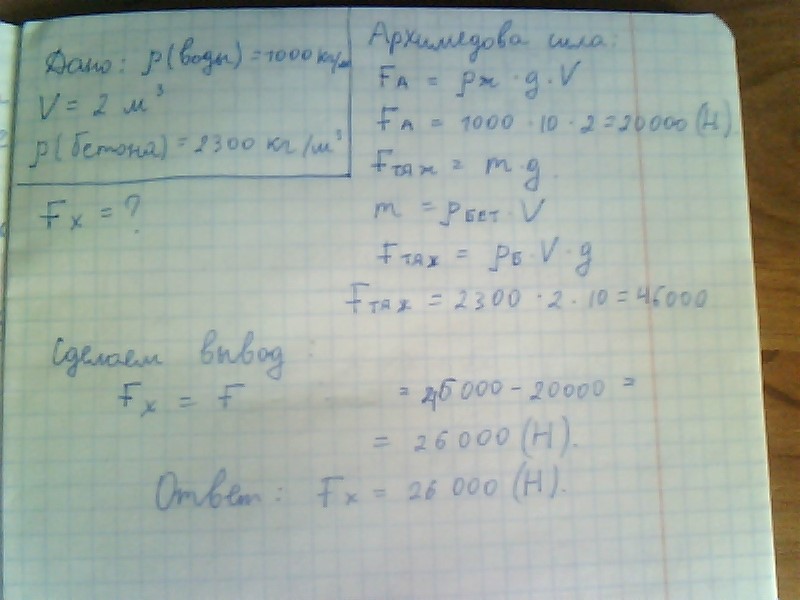 Дано: ρ(воды) = 1000 кг/м
V = 2 м³
ρ(бетона) = 2300 кг/м³
Fх = ?
Архимедова сила:
FА = ρж · g · V
FА = 1000 · 10 · 2 = 20000 (Н)
Fтяж = m · g
m = ρбет · V
Fтяж = ρб · V · g
Fтяж = 2300 · 2 · 10 = 46000
Сделаем вывод:
Fх = F = 46000 - 20000 =
= 26000 (Н).
Ответ: Fх = 26 000 (Н).